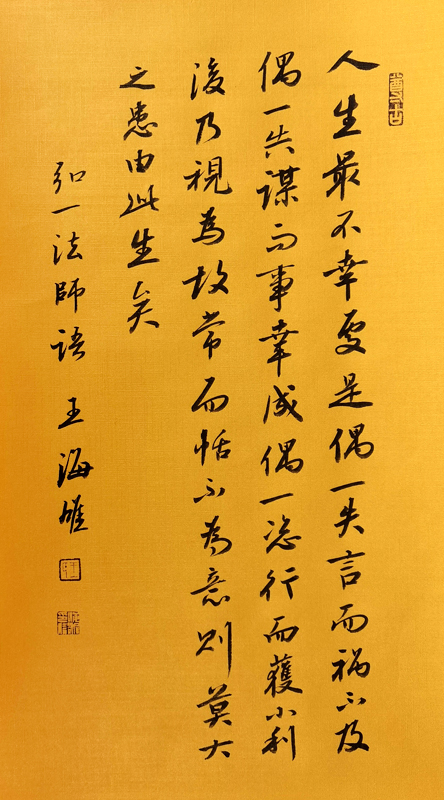 人生最不幸處是偶一失言而禍不及
偶一失謀而事幸成偶一恣行而獲小利
後乃視為故常而恬不為意則莫大
之患由此生矣
弘一法師語 王海